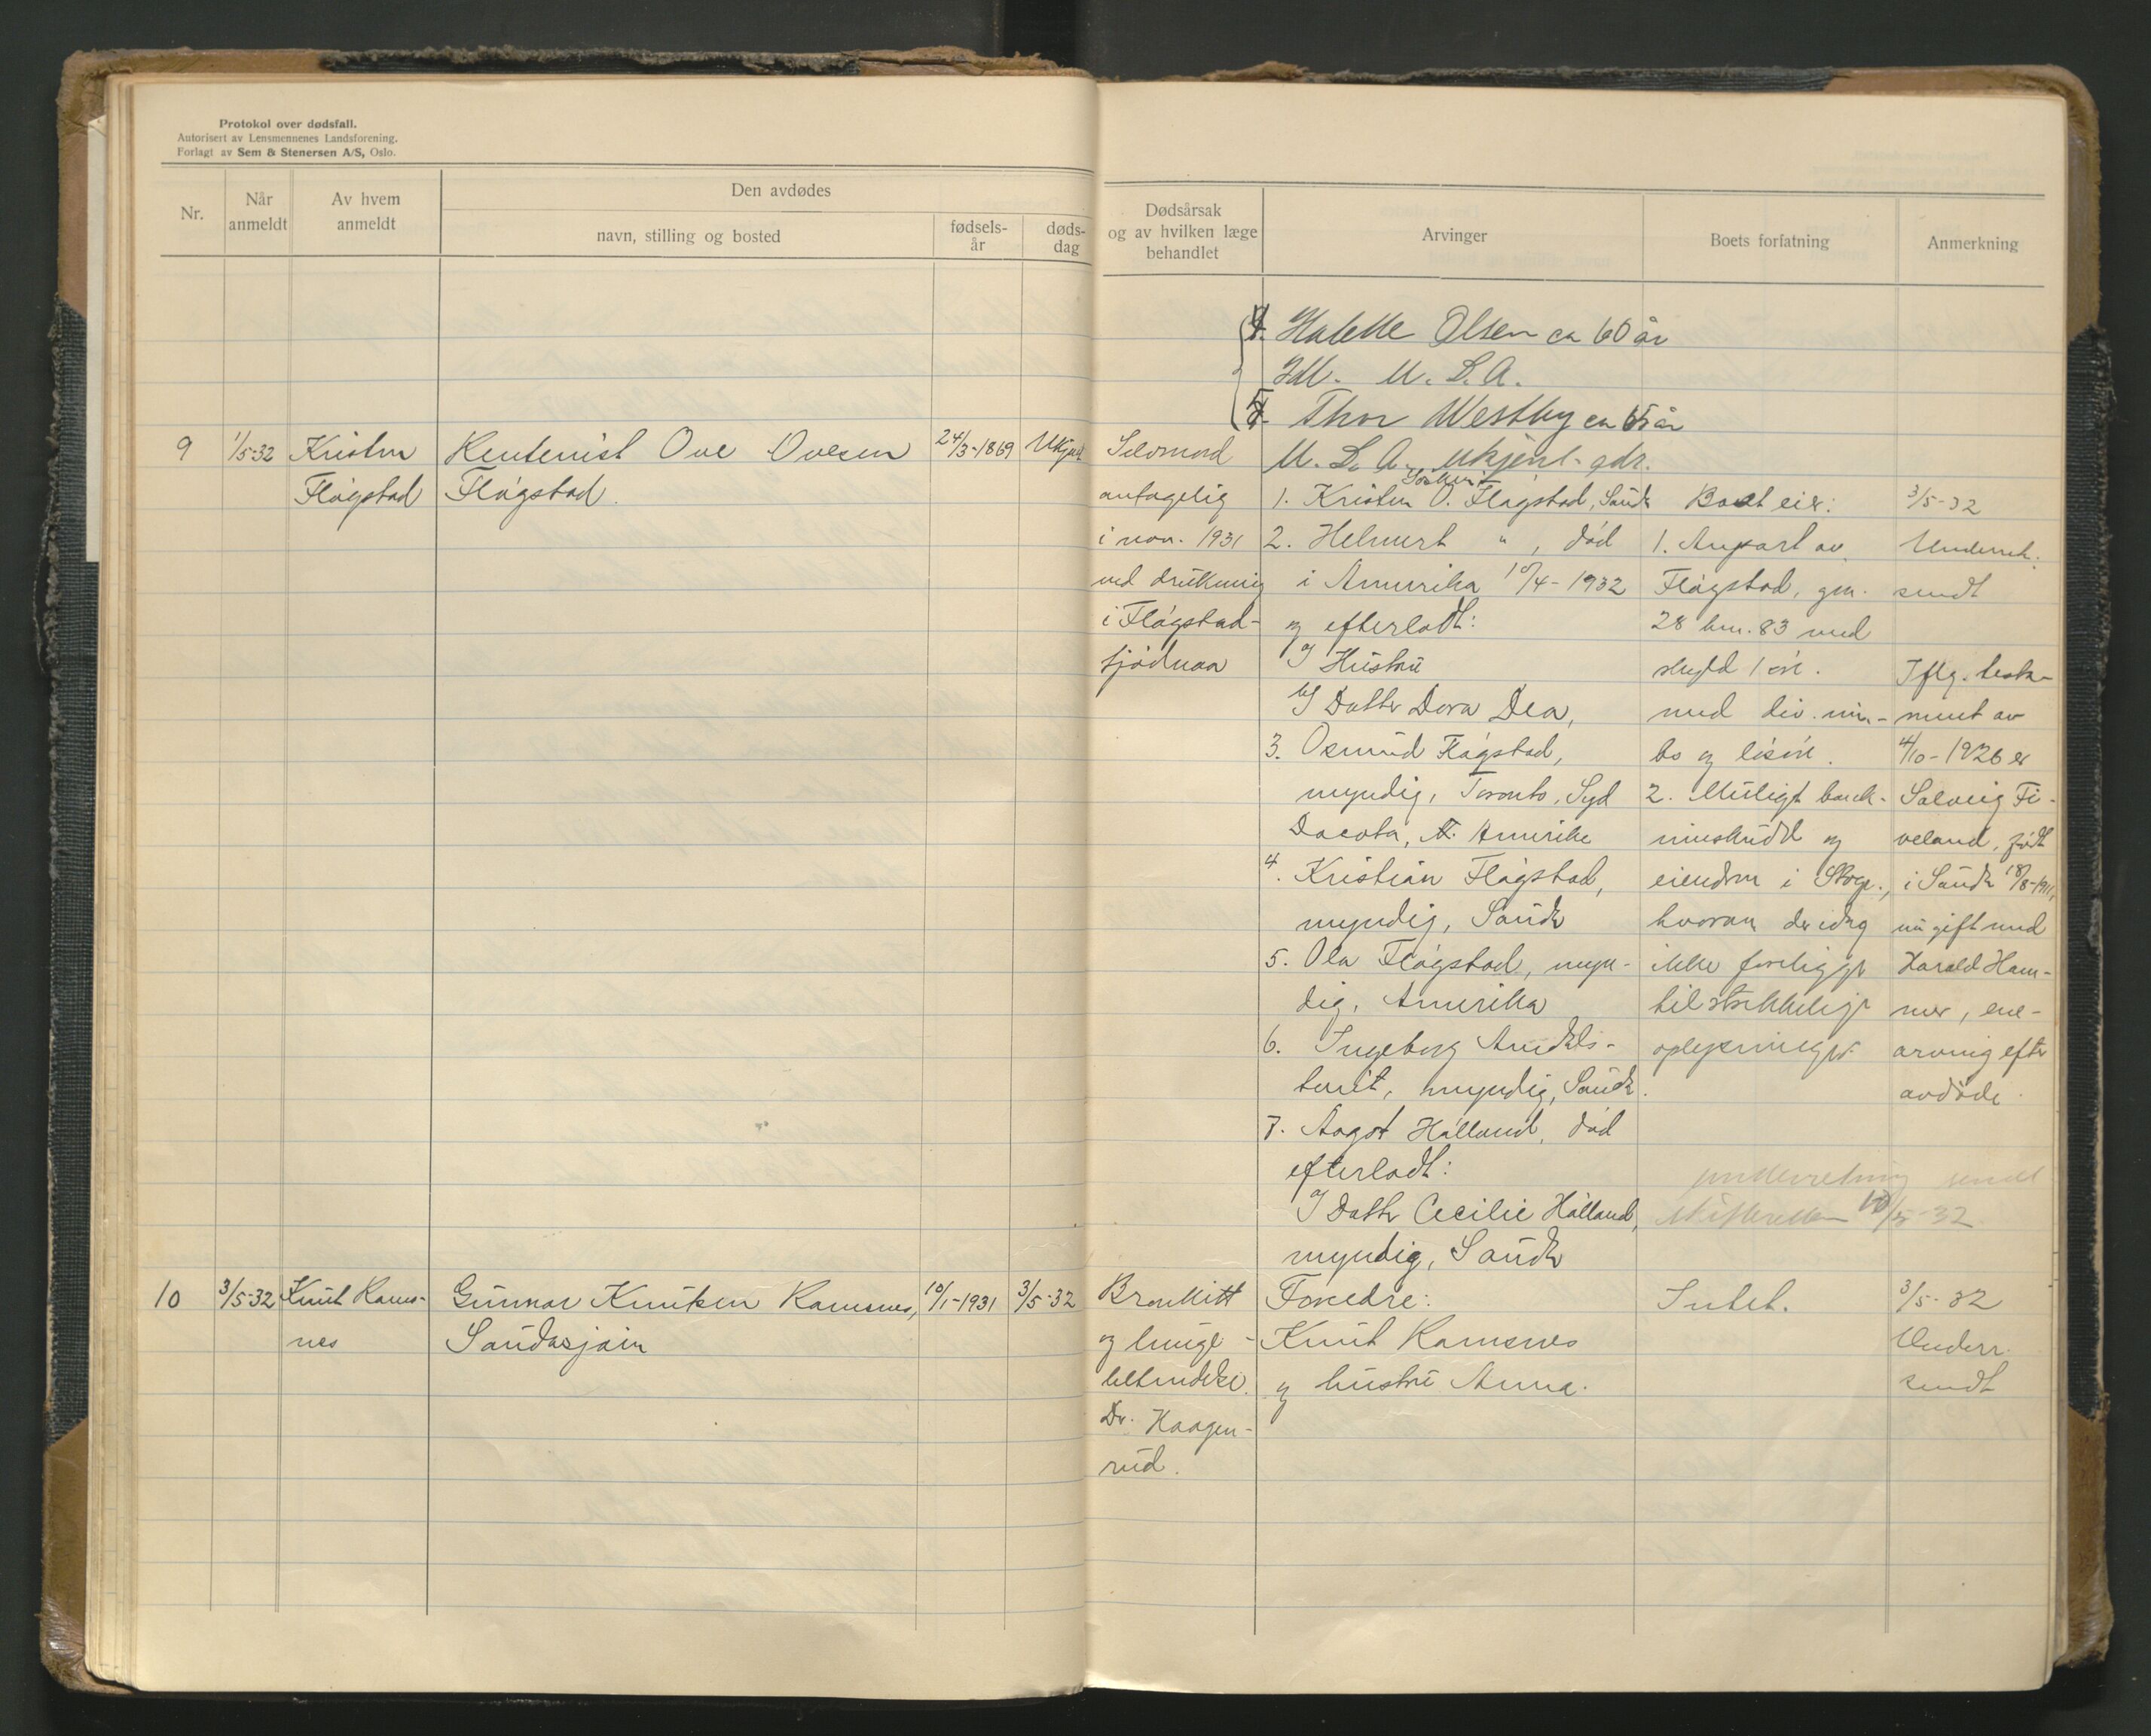 Protokol over dødsfall.
Autorisert av Lensmennenes Landsforening.
Forlagt av Sem & Stenersen A/S, Oslo.
Nr.
Når
anmeldt
Av hvem
anmeldt
Den avdødes
navn, stilling og bosted
fødsels-
år
døds-
dag
Dødsårsak
og av hvilken læge
behandlet
Arvinger
Boets forfatning
Anmerkning
Olsen ca 60 år
Ill. U. S. A.
Thor Westby ca 65 år
U. S. A., ukjent adr.
9
1/5-32
Kristen
Flågstad
Rentenist Ove Ovesen
Flågstad.
24/3-1869
Ukjent
Selvmord
antagelig
i nov. 1931
ved drukning
i Flågstad-
tjødnaa
1. Kristen O. Flågstad, Saude
2. Helmert " , død
i Amerika 10/4-1932
og efterladt:
a/ Hustru
b/ Datter Dora Dea,
3. Osmund Flågstad,
myndig, Toronto, Syd
Dacota, N. Amerika
4. Kristian Flågstad,
myndig, Saude
5. Ola Flågstad, myn-
dig, Amerika
6. Ingeborg Amdals-
tveit, myndig, Saude.
7. Aagot Hålland, død
efterladt:
a/ Datter Cecilie Hålland,
myndig, Saude
Boet eier:
1. Anpart av
Flågstad, gnr.
28 bnr. 83 med
skyld 1 øre.
med div. inn-
bo og løsøre.
2. Muligt bank-
innskudd og
eiendom i Skogn.,
hvorom der idag
ikke foreligger
tilstrekkelige
oplysninger.
3/5-32
Underret.
sendt
Iflg. testa-
ment av
4/10-1926 er
Solveig Fi-
veland, født
i Saude 18/8-1911,
nu gift med
Harald Ham-
mer, ene-
arving efter
avdøde.
underretning sendt
10/5-32
10
3/5-32
Knut Rams-
nes
Gunnar Knutsen Ramsnes,
Saudasjøen
10/1-1931
3/5-32
Bronkitt
og lunge-
betendelse.
Dr. Haagen-
rud.
Foreldre:
Knut Ramsnes
og hustru Anna.
Intet.
3/5-32
Underr.
sendt